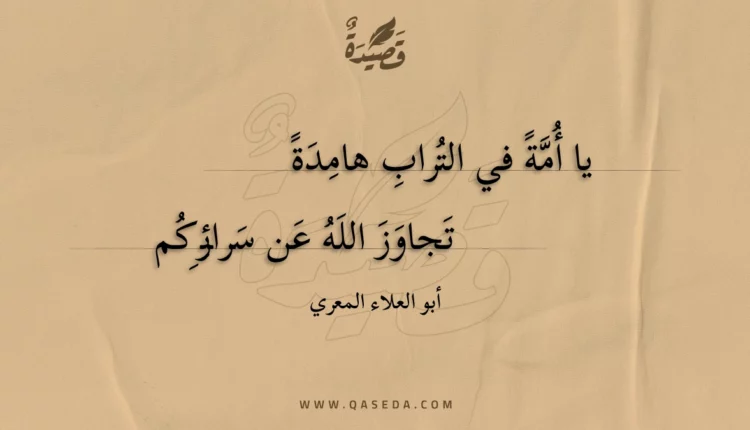 قَصِيدَةٌ
يا أُمَّةً في التُرابِ هامِدَةً
تَجاوَزَ اللَهُ عَن سَرائِرِكُم
أبو العلاء المعري
WWW.QASEDA.COM